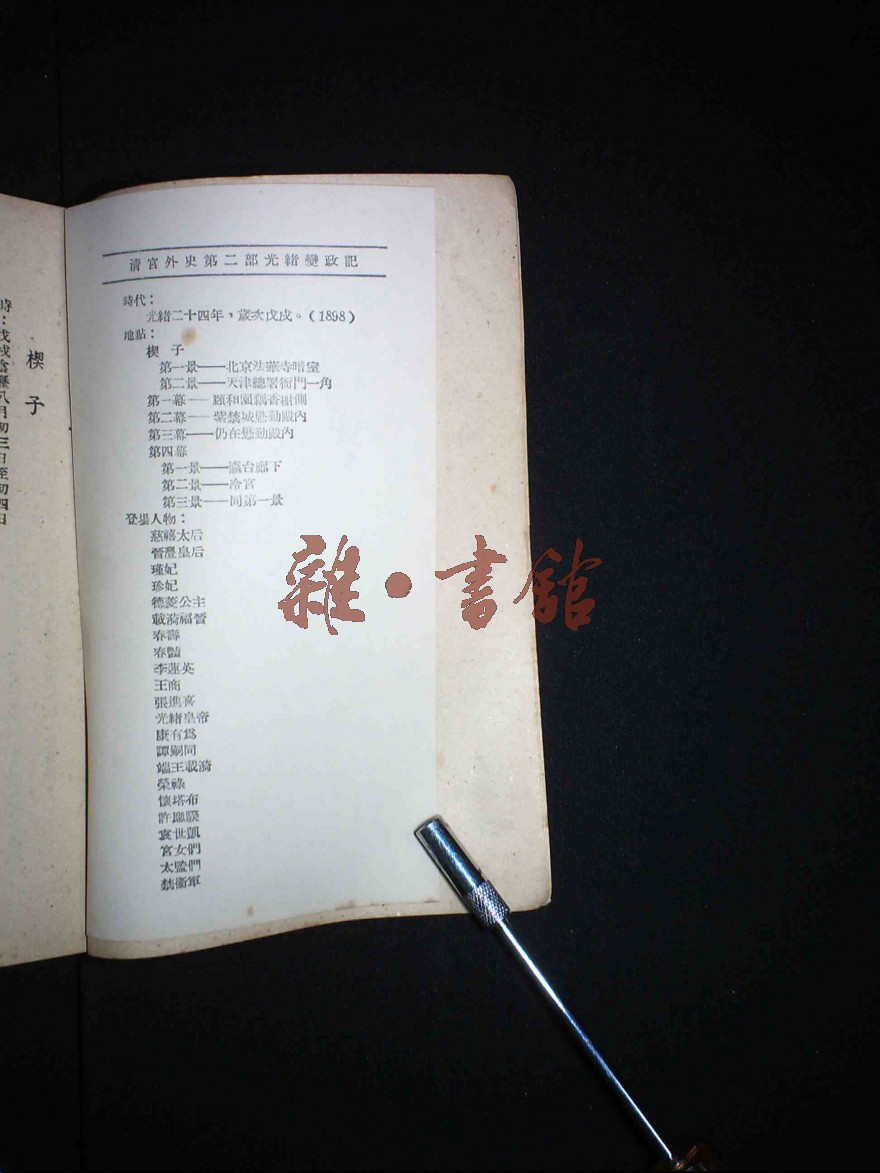 清宮外史第二部光緒變政記
時代：
光緒二十四年，歲次戊戌。(1898)
地點：
楔子
第一景——北京法華寺暗室
第二景——天津總署衙門一角
第一幕——頤和園藕香榭側
第二幕——紫禁城懋勤殿內
第三幕——仍在懋勤殿內
第四幕
第一景——瀛台廊下
第二景——冷宮
第三景——同第一景
登場人物：
慈禧太后
晉豐皇后
瑾妃
珍妃
德菱公主
載漪福晉
春壽
春豔
李蓮英
王商
張進喜
光緒皇帝
康有為
譚嗣同
端王載漪
榮祿
懷塔布
許應騤
袁世凱
宮女們
太監們
禁衞軍
楔子
時：戊戌陰曆八月初三日至初四日
雜·書館